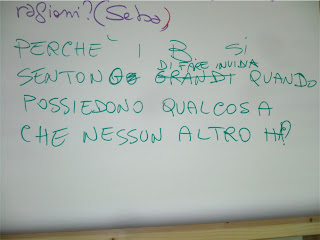 ragioni? (Seba)
PERCHE' I B. SI
DI FARE INVIDIA
SENTONO GRANDI QUANDO
POSSIEDONO QUALCOSA
CHE NESSUN ALTRO HA?